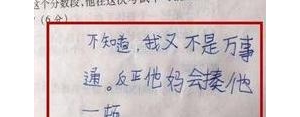 这个分数段,他在这次考试
(6分)
不知道,我又不是万事
通。反正他妈会揍他
一顿